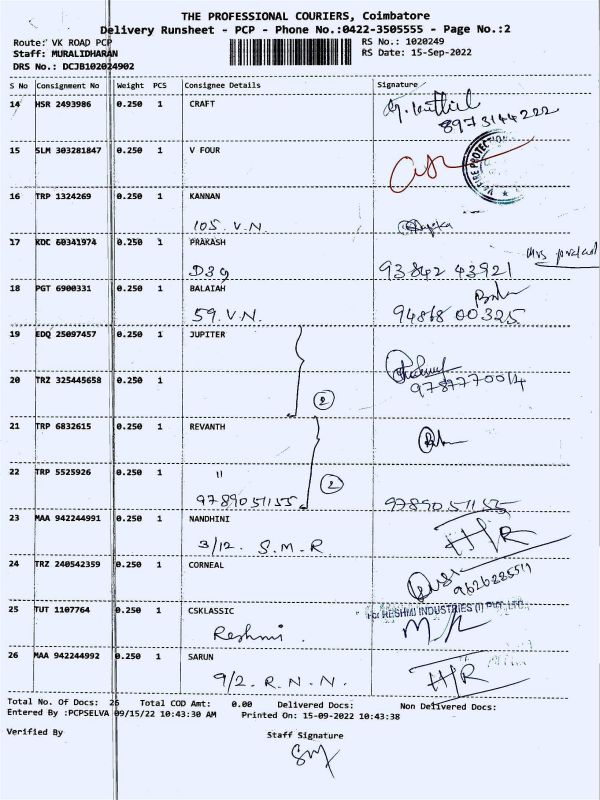 THE PROFESSIONAL COURIERS, Coimbatore
Delivery Runsheet - PCP - Phone No.:0422-3505555 - Page No.:2
Route: VK ROAD PCP
RS No.: 1020249
Staff: MURALIDHARAN
RS Date: 15-Sep-2022
DRS No.: DCJB102024902
S No Consignment No Weight PCS Consignee Details Signature
14 HSR 2493986 0.250 1 CRAFT
8973144222
15 SLM 303281847 0.250 1 V FOUR
FIRE PROTEC
16 TRP 1324269 0.250 1 KANNAN
105. V.N.
17 KDC 60341974 0.250 1 PRAKASH
Mrs
D39 93842 43921
18 PGT 6900331 0.250 1 BALAIAH
59. V.N. 94868 00325
19 EDQ 25097457 0.250 1 JUPITER
20 TRZ 325445658 0.250 1
2 9787770014
21 TRP 6832615 0.250 1 REVANTH
22 TRP 5525926 0.250 1 "
2
9789051155 9789051155
23 MAA 942244991 0.250 1 NANDHINI
3/12. S.M.R
24 TRZ 240542359 0.250 1 CORNEAL
9626285511
25 TUT 1107764 0.250 1 CSKLASSIC
For RESHMI INDUSTRIES (I) PVT. LTD.
Reshmi.
26 MAA 942244992 0.250 1 SARUN
9/2. R.N.N.
Total No. Of Docs: 26 Total COD Amt: 0.00 Delivered Docs: Non Delivered Docs:
Entered By :PCPSELVA 09/15/22 10:43:30 AM Printed On: 15-09-2022 10:43:38
Verified By Staff Signature